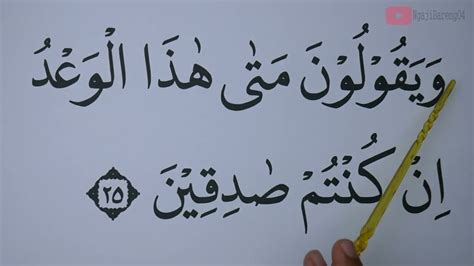 NgajiBareng04
وَيَقُوْلُوْنَ مَتٰى هٰذَا الْوَعْدُ
اِنْ كُنْتُمْ صٰدِقِيْنَ ۝٢٥